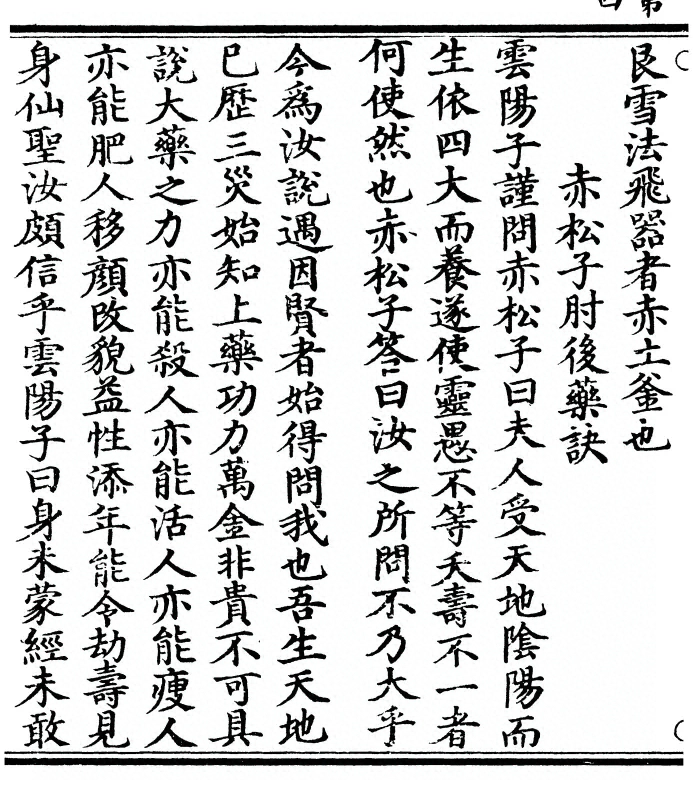 艮雪法飛器者赤土釜也
赤松子肘後藥訣
雲陽子謹問赤松子曰夫人受天地陰陽而
生依四大而養遂使靈愚不等夭壽不一者
何使然也赤松子答曰汝之所問不乃大乎
今爲汝說遇因賢者始得問我也吾生天地
巳歷三災始知上藥功力萬金非貴不可具
說大藥之力亦能殺人亦能活人亦能瘦人
亦能肥人移顏改貌益性添年能令劫壽見
身仙聖汝頗信乎雲陽子曰身未蒙經未敢